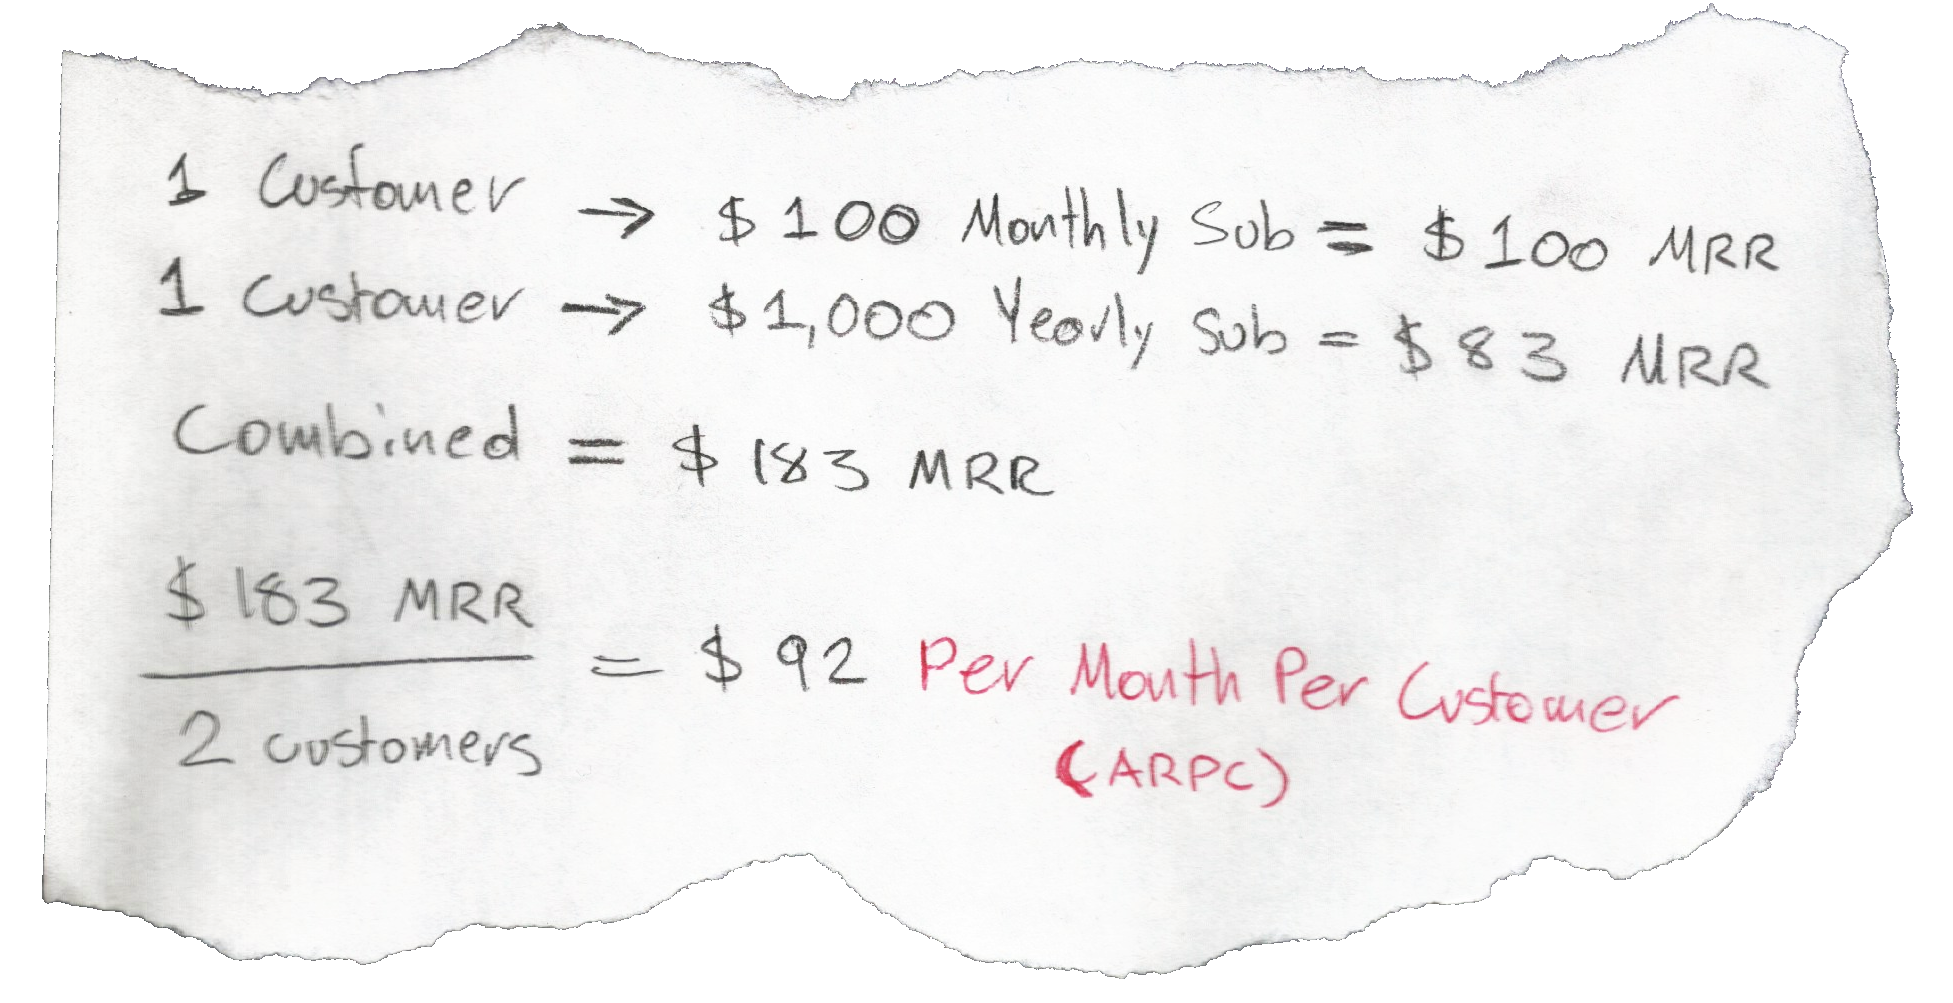 1 Customer → $100 Monthly Sub = $100 MRR
1 Customer → $1,000 Yearly Sub = $83 MRR
Combined = $183 MRR
$183 MRR
2 customers
= $92 Per Month Per Customer
(ARPC)